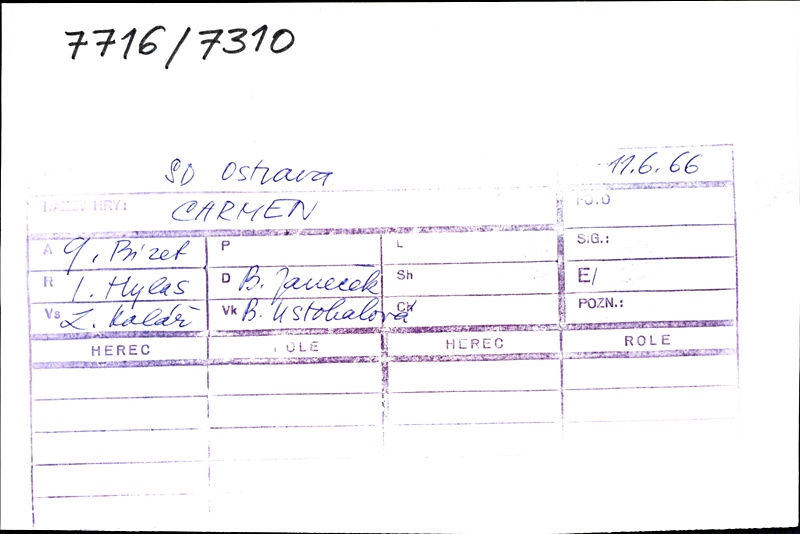 7716/7310
SD Ostrava 11.6.66
NÁZEV HRY: CARMEN FOTO
A G. Bizet P L SIG.:
R I. Hylas D B. Janeček Sh E/
Vs Z. Kolář Vk B. Ustohalová Ch POZN.:
HEREC ROLE HEREC ROLE